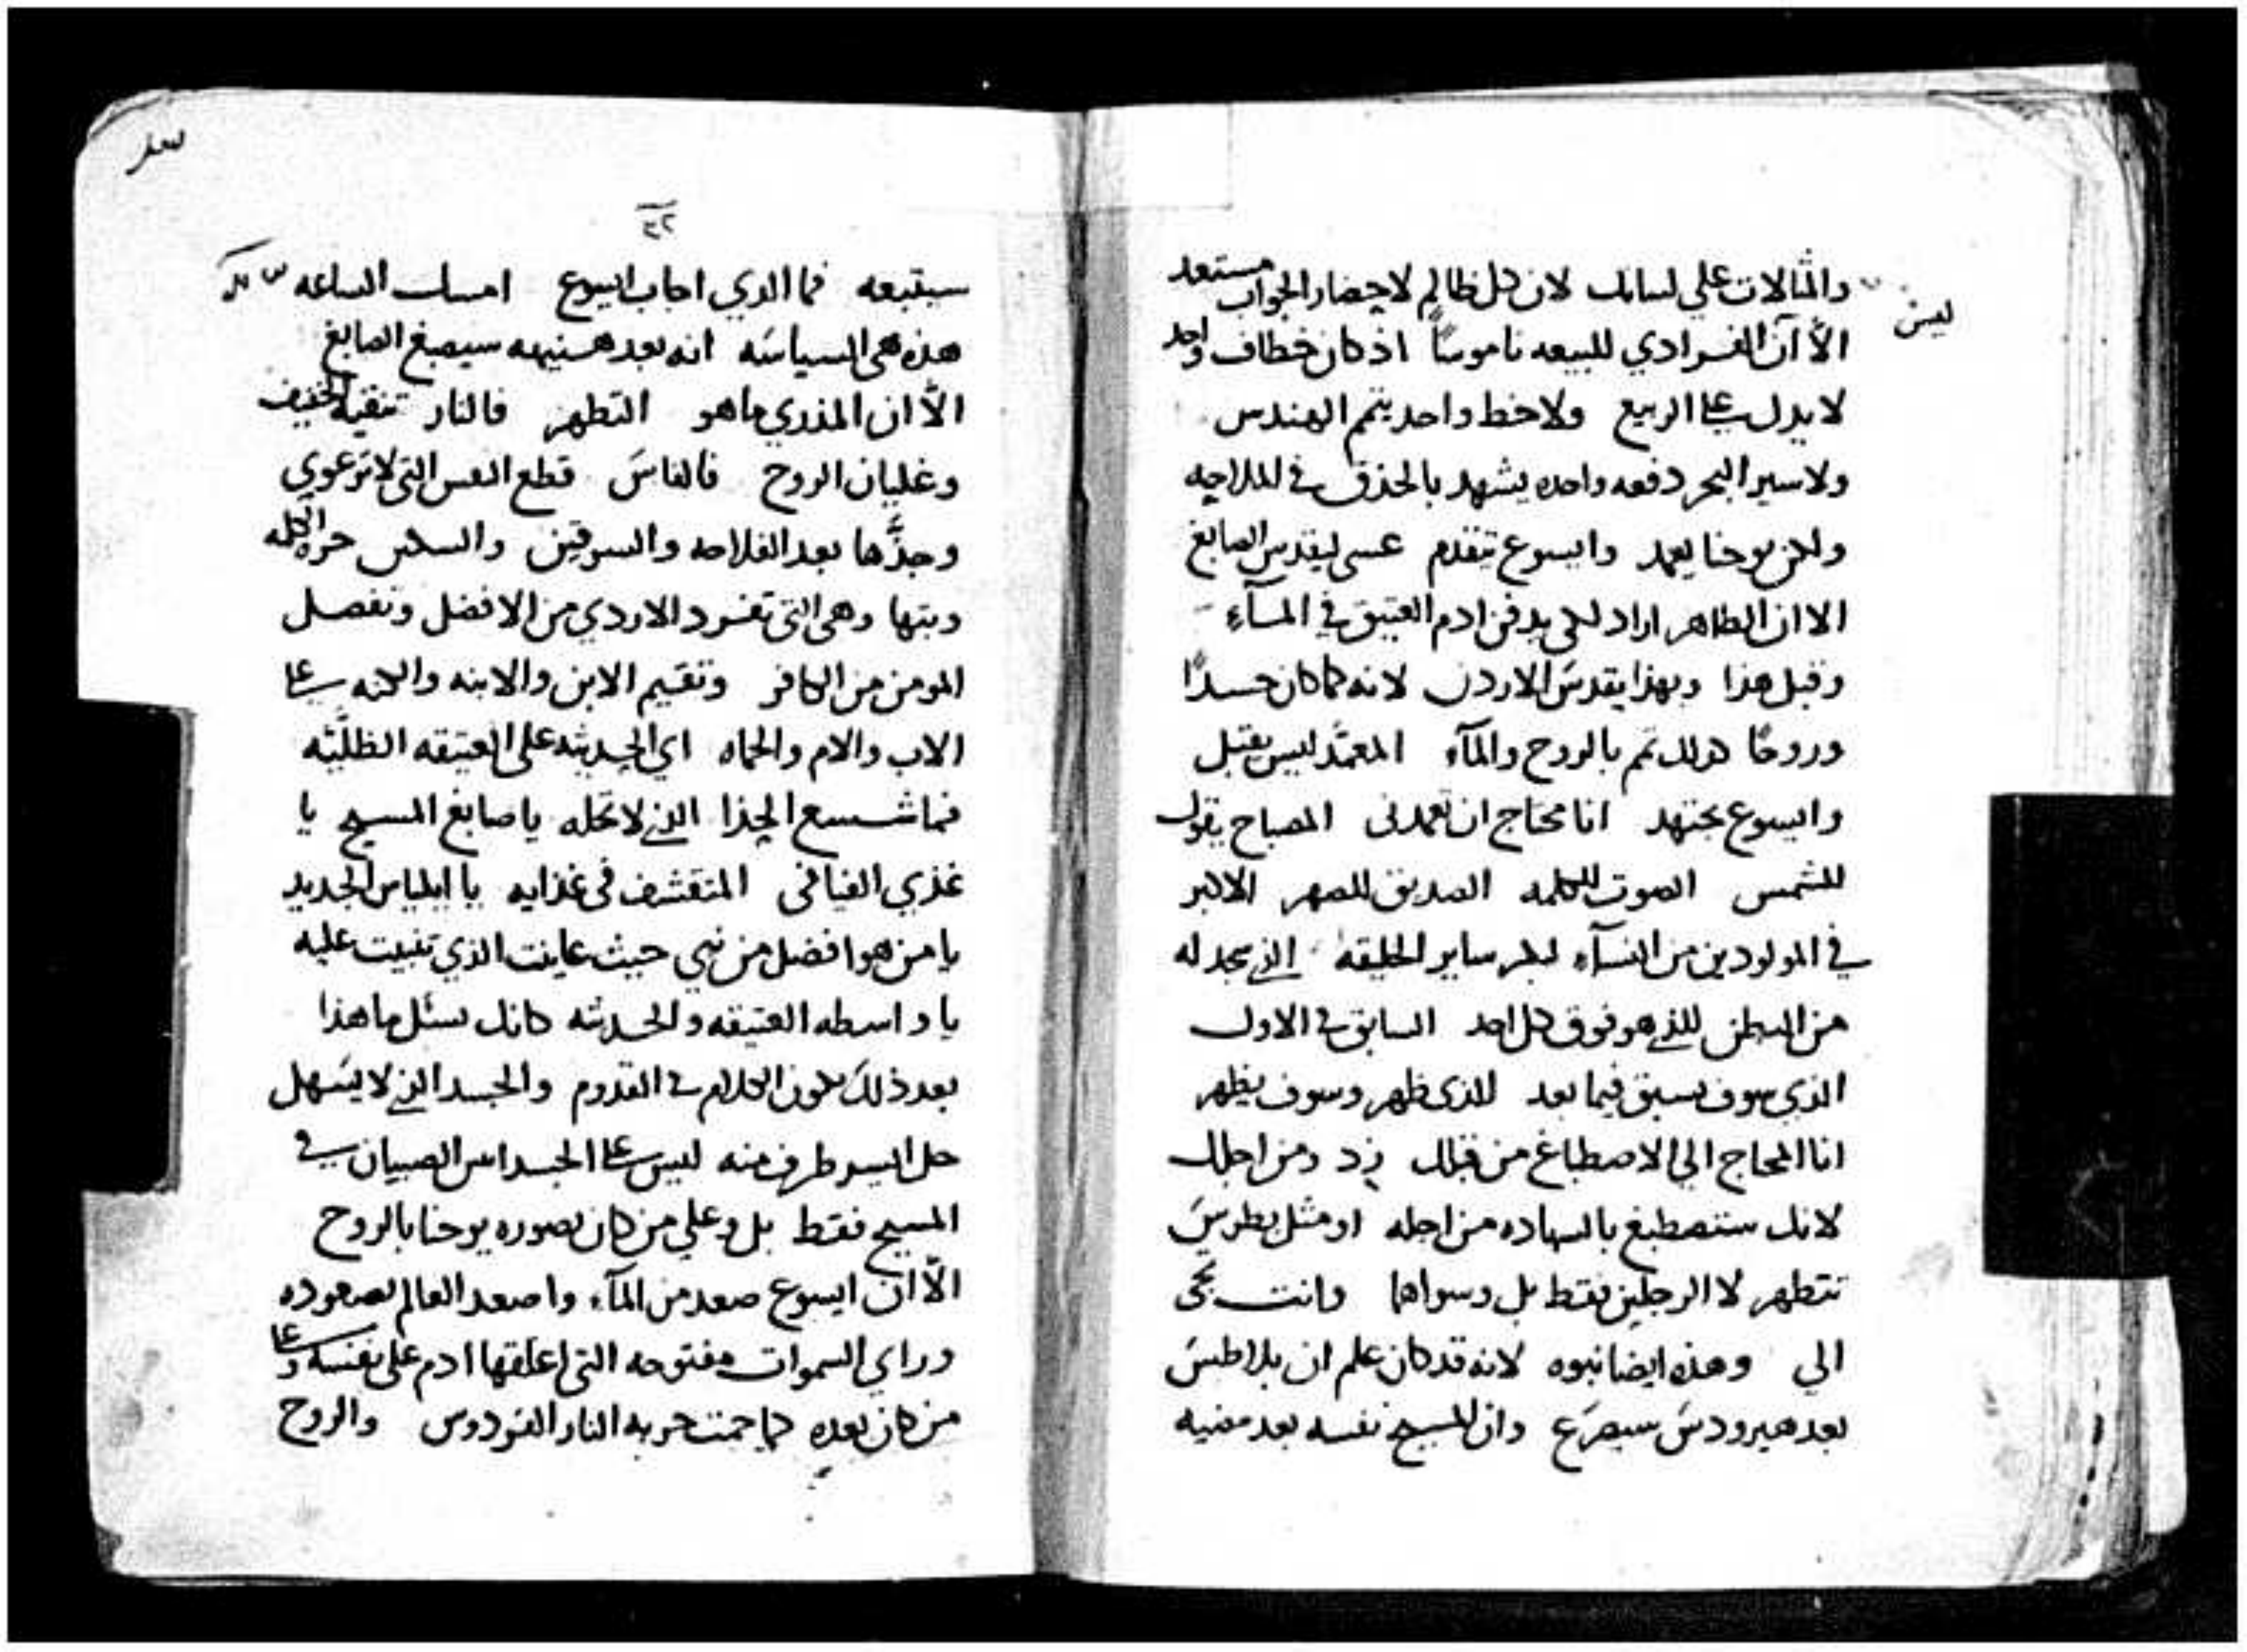 والمثالات علي لسانك لان كل ظالم لاحضار الجواب مستعد
ليس
الا ان الفرادي للبيعه ناموسًا اذ كان خطاف واحد
لا يدل على الربيع ولا خط واحد يتمم المهندس
ولا سير البحر دفعه واحده يشهد بالحذق في الملاحه
ولكن يوحنا يعمد وايسوع تتقدم عسى ليقدس الصابغ
الا ان الظاهر اراد لكي يدفن ادم العتيق في المآء
وقبل هذا وبهذا يقدس الاردن لانه كما كان جسدًا
وروحًا كذلك تمم بالروح والمآء المعمد ليس يقبل
وايسوع يجتهد انا محتاج ان تعمدني المصباح يقول
للشمس الصوت للكلمه الصديق للصهر الاكبر
في المولودين من النسآء لبكر ساير الخليقه الذي سجد له
من البطن للذي هو فوق كل احد السابق في الاول
الذي سوف يسبق فيما بعد للذي ظهر وسوف يظهر
انا المحتاج الي الاصطباغ من قبلك زد ومن اجلك
لانك ستصطبغ بالشهاده من اجله او مثل بطرس
تتطهر لا الرجلين فقط بل وسواهما وانت تجى
الي وهذه ايضا نبوه لانه قد كان علم ان بلاطس
بعد هيرودس سيصرع وان المسيح نفسه بعد مضيه
٣٢
سيتبعه فما الذي اجاب ايسوع امسك الساعه
هذه هي السياسه انه بعد هنيهه سيصبغ الصابغ
الا ان المذري ما هو التطهر فالنار تنقيه الخفيف
وغليان الروح فالفاس قطع النفس التي لا ترعوي
وجذها بعد الفلاحه والسرقين والسكين الكله
وبتها وهي التي تفرد الاردي من الافضل وتفصل
المومن من الكافر وتقيم الابن والابنه والكنه على
الاب والام والحماه اي الحديثه على العتيقه الظليه
فما شسع الحذا الذي لا تحله يا صابغ المسيح يا
غذي الفيافي المتقشف في غذايه يا ايلياس الجديد
يا من هو افضل من نبي حيث عاينت الذي تنبيت عليه
يا واسطه العتيقه والحديثه كانك تسئل ما هذا
بعد ذلك يكون الكلام في القدوم والجسد الذي لا يسهل
حل ايسر طرف منه ليس على الجسد الصبيان في
المسيح فقط بل وعلي من كان بصوره يوحنا بالروح
الا ان ايسوع صعد من المآء واصعد العالم بصعوده
وراي السموات مفتوحه التي اغلقها ادم على نفسه وعلى
من كان بعده كما ختمت حربه النار الفردوس والروح